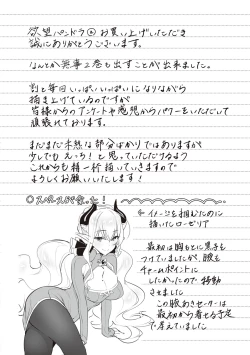 欲望パンドラ②お買い上げいただき
誠にありがとうございます。
なんとか無事2巻も出すことが出来ました。
割と毎回いっぱいいっぱいになりながら
描き上げているのですが
皆様からのアンケートや感想からパワーをいただいて
頑張れております。
まだまだ未熟な部分ばかりではありますが
少しでもえっち!と思っていただけるよう
これからも精一杯描いていきますので
よろしくお願いいたします!
イメージを掴むために
描いたロ―ゼリア
最初は胸もとに黒子も
ついていましたが、顔を
チャームポイントに
したかったので移動
させました
この腹あきセーターは
最初から着せる予定
で考えていました